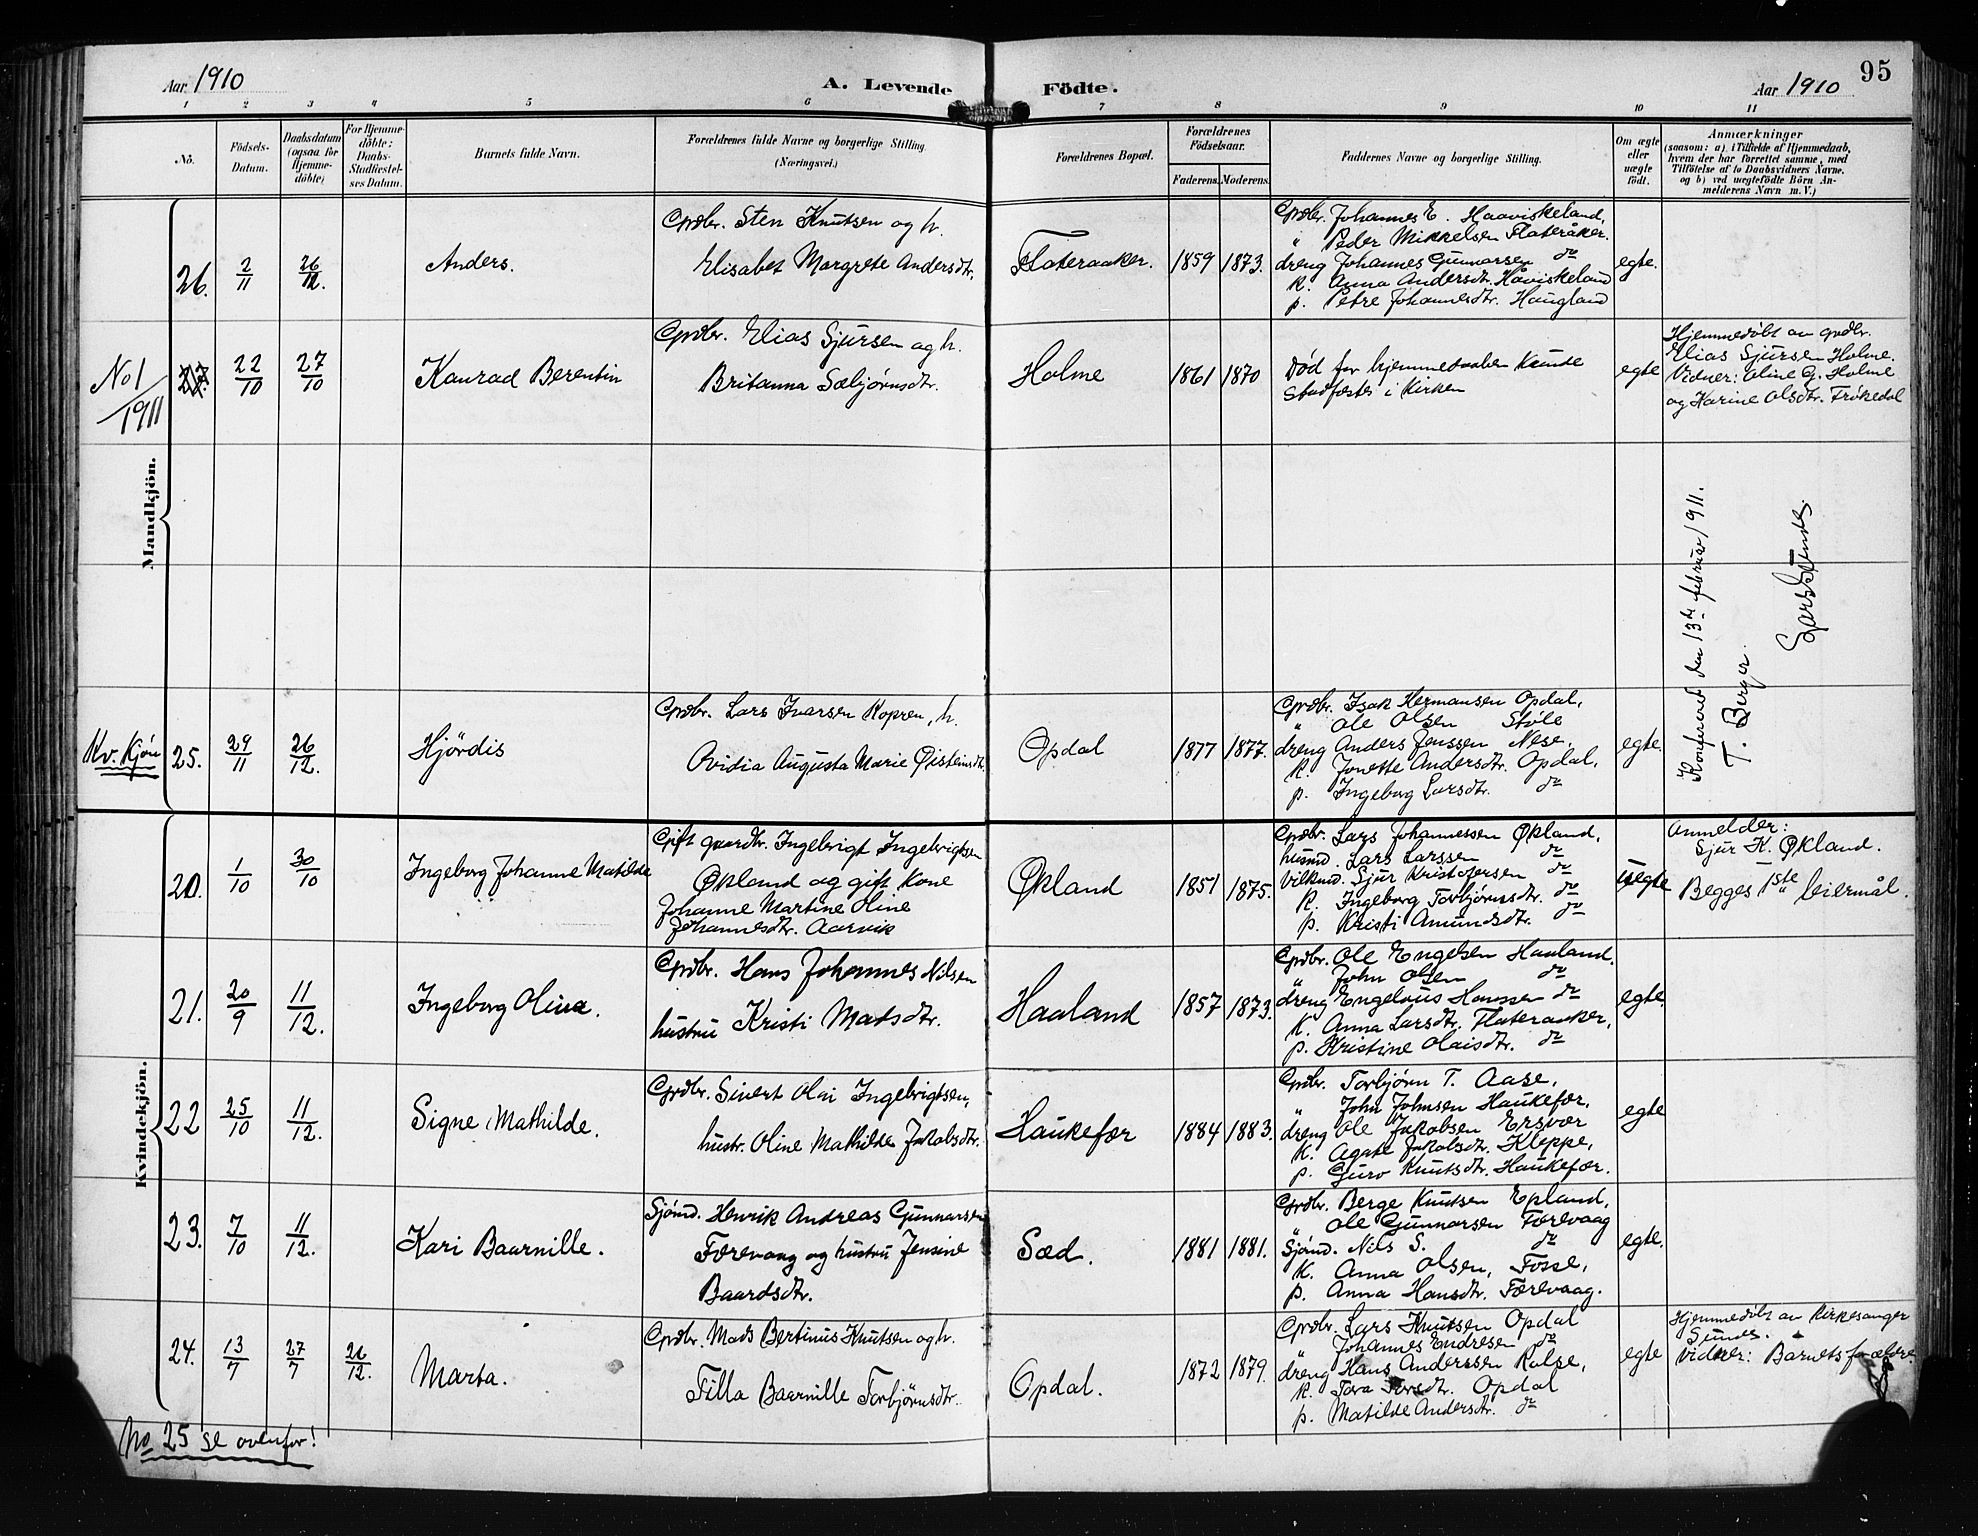 Aar 1910
A. Levende
Födte.
Aar 1910
95
1 2 3 4 5 6 7 8 9 10 11
No.
Födsels-
Datum.
Daabsdatum
(ogsaa for
Hjemme-
döbte)
For Hjemme-
döbte:
Daabs-
Stadfæstel-
ses Datum.
Barnets fulde Navn.
Forældrenes fulde Navne og borgerlige Stilling.
(Næringsvei.)
Forældrenes Bopæl.
Forældrenes
Födselsaar.
Faderens.
Moderens.
Faddernes Navne og borgerlige Stilling.
Om ægte
eller
uægte
födt.
Anmærkninger
(saasom: a) i Tilfælde af Hjemmedaab,
hvem der har forrettet samme, med
Tilföielse af to Daabsvidners Navne.
og b) ved uægtefödte Börn An-
melderens Navn m. V.)
Mandkjön.
26.
2/11
26/12.
Anders.
Grdbr. Sten Knutsen og h.
Elisabet Margrete Andersdtr.
Flateraaker.
1859
1873.
Grdbr. Johannes E. Haaviskeland,
" Peder Mikkelsen Flateråker.
dreng Johannes Gunnarsen do
k. Anna Andersdtr. Håviskeland
p. Petre Johannesdtr. Haugland
egte.
No 1/1911
27.
22/10
27/10
Konrad Berentin
Grdbr. Elias Sjursen og h.
Britanna Sæbjørnsdtr.
Holme
1861
1870
Død før hjemmedaaben kunde
stadfestes i Kirken
egte
Hjemmedøbt av grdbr.
Elias Sjursen Holme.
Vidner: Oline G. Holme
og Karine Olsdtr. Frøkedal
Konfereret den 13de februar 1911.
T. Berger.
Kv. Kjøn
25.
29/11
26/12.
Hjördis
Grdbr. Lars Ivarsen Kopren, h.
Ovidia Augusta Marie Øisteinsdtr.
Opdal
1877
1877.
Grdbr. Isak Hermansen Opdal,
" Ole Olsen Støle
dreng Anders Jenssen Nese,
k. Jonette Andersdtr. Opdal,
p. Ingeborg Larsdtr. do
egte.
Kvindekjön.
20.
1/10
30/10
Ingeborg Johanne Matilde
Gift gaardbr. Ingebrigt Ingebrigtsen
Økland og gift Kone
Johanne Martine Oline
Johannesdtr. Aarvik
Økland
1851
1875.
Grdbr. Lars Johannessen Økland,
husmd. Lars Larssen do
Vilkmd. Sjur Kristofersen do
k. Ingeborg Torbjørnsdtr. do
p. Kristi Amundsdtr. do
uegte
Anmelder:
Sjur K. Økland.
Begges 1ste leiermål.
21.
20/9
11/12.
Ingeborg Olina.
Grdbr. Hans Johannes Nilsen
hustru Kristi Matsdtr.
Haaland
1857
1873.
Grdbr. Ole Engelsen Haaland.
" John Olsen do
dreng Engelous Hanssen do
k. Anna Larsdtr. Flateraaker,
p. Kristine Olaisdtr. do
egte.
22
25/10
11/12.
Signe Mathilde.
Grdbr. Sivert Olai Ingebrigtsen,
hustr. Oline Mathilde Jakobsdtr.
Haukefær
1884
1883.
Grdbr. Torbjørn T. Aase,
" John Johnsen Haukefær,
dreng Ole Jakobsen Ersvær
k. Agate Jakobsdtr. Kleppe,
p. Guro Knutsdtr. Haukefær.
egte
23.
7/10
11/12.
Kari Baarnille.
Sjømd. Henrik Andreas Gunnarsen
Færevaag og hustru Jensine
Baardsdtr.
Sæd.
1881
1881.
Grdbr. Berge Knutsen Epland,
" Ole Gunnarsen Færevaag
Sjømd. Nils S. do
k. Anna Olsen, Fosse,
p. Anna Hansdtr. Færevaag.
egte.
24.
13/7
27/7
26/12.
Marta.
Grdbr. Mads Bertinus Knutsen og h.
Filla Baarnille Torbjørnsdtr.
Opdal.
1872
1879.
Grdbr. Lars Knutsen Opdal
" Johannes Endresen do
dreng Hans Anderssen Kalse,
k. Tora Torsdtr. Opdal
p. Matilde Andersdtr. do
egte
Hjemmedøbt av Kirkesanger
Vidner: Barnets forældre
No 25 se ovenfor!